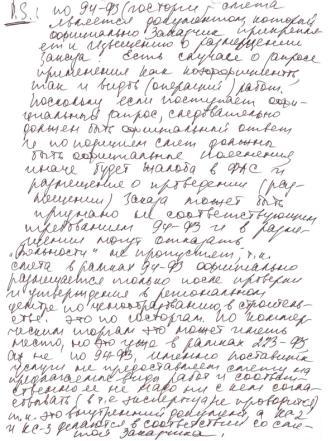 P.S.: по 94-ФЗ (госторги) смета
является документом, который
официально Заказчик прикрепля-
ет к извещению о размещении
заказа. Есть случаи о запросе
применения как коэффициентов,
так и видов (операций) работ.
Поскольку если поступает офи-
циальный запрос, следовательно
должен быть официальный ответ
и по позициям смет должны
быть официальные пояснения
иначе будет жалоба в ФАС и
размещение о проведении (раз-
мещении) Заказа может быть
признано не соответствующим
требованиям 94-ФЗ и в разме-
щении могут отказать.
"Вольности" не пропустят, т.к.
смета в рамках 94-ФЗ официально
размещается только после проверки
и утверждения в региональном
центре по ценообразованию в строитель-
стве. Это по госторгам. По коммер-
ческим торгам это может иметь
место, но это уже в рамках 223-ФЗ
а не по 94-ФЗ, именно поставщик
услуги не предоставляет смету на
предлагаемые виды работ и соответ-
ственно ее не надо ни с кем согла-
совывать (в т.ч. экспертиза не проводится)
т.к. это внутренний документ, а КС-2
и КС-3 делаются в соответствии со сме-
той Заказчика.